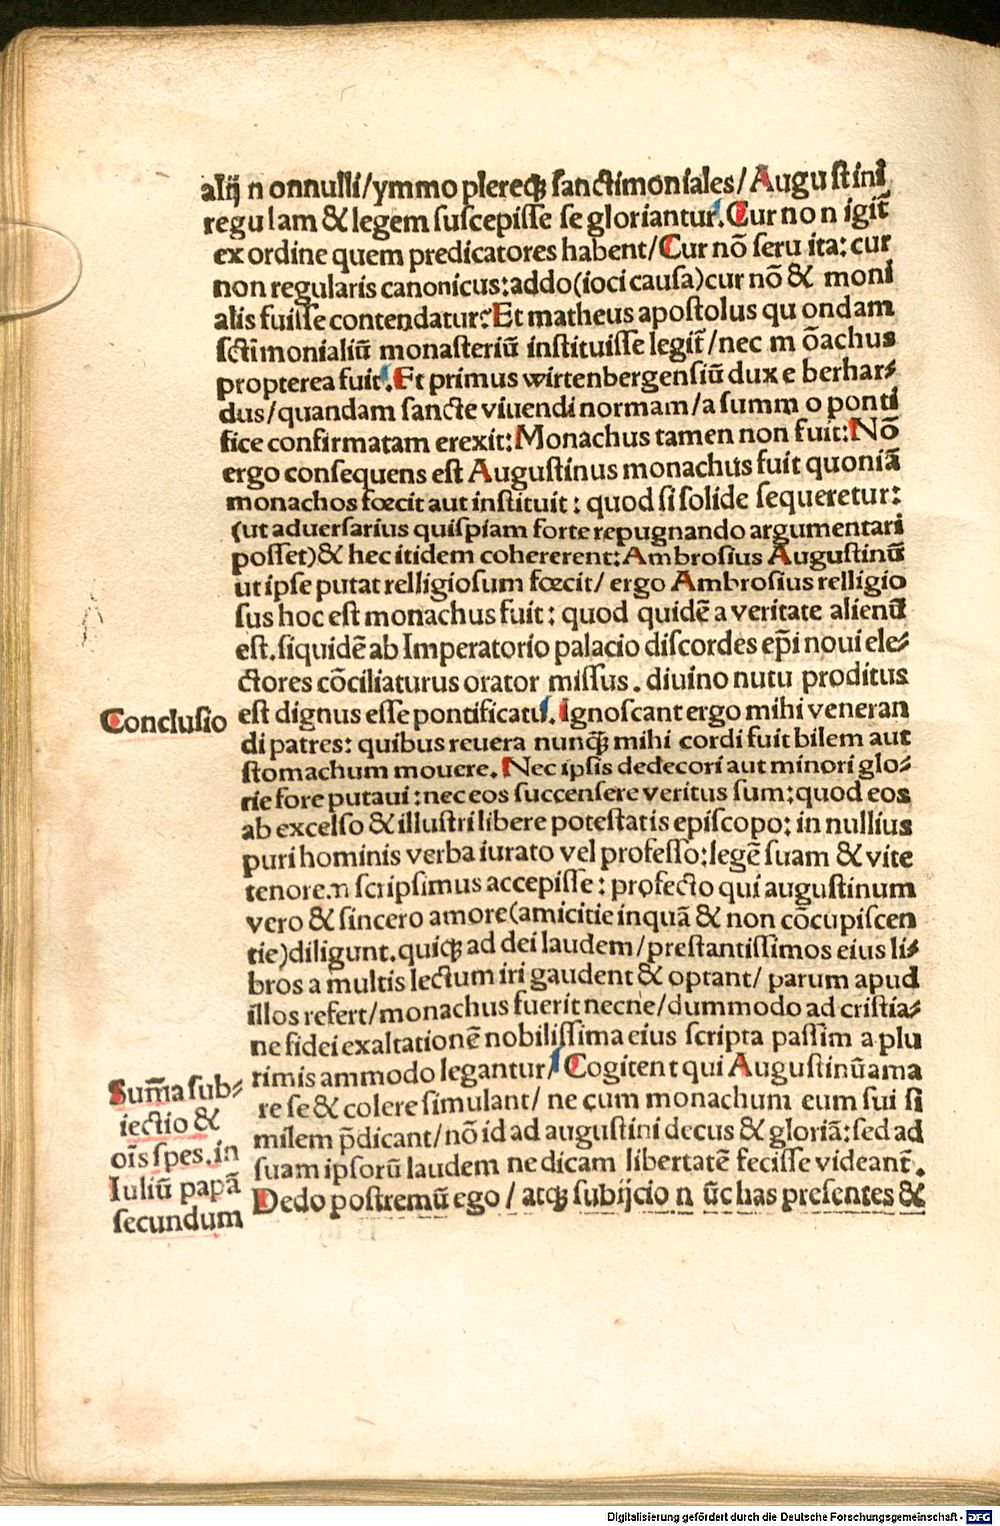 alij n onnulli/ymmo plereqꝫ sanctimoniales/Augustini
regulam & legem suscepisse se gloriantur. Cur no n igit̃
ex ordine quem predicatores habent/Cur nō seru ita: cur
non regularis canonicus: addo(ioci causa)cur nō & moni
alis fuisse contendatur? Et matheus apostolus qu ondam
sctĩmonialiũ monasteriũ instituisse legit̃/nec m ōachus
propterea fuit. Et primus wirtenbergensiũ dux e berhar⸗
dus/quandam sancte viuendi normam/a summ o ponti
fice confirmatam erexit: Monachus tamen non fuit: Nō
ergo consequens est Augustinus monachus fuit quoniã
monachos fœcit aut instituit: quod si solide sequeretur:
(ut aduersarius quispiam forte repugnando argumentari
posset)& hec itidem cohererent: Ambrosius Augustinũ
ut ipse putat relligiosum fœcit/ ergo Ambrosius relligio
sus hoc est monachus fuit: quod quidẽ a veritate alienũ
est. siquidẽ ab Imperatorio palacio discordes ep̃i noui ele⸗
ctores cõciliaturus orator missus. diuino nutu proditus
Conclusio
est dignus esse pontificatu. Ignoscant ergo mihi veneran
di patres: quibus reuera nunqꝫ mihi cordi fuit bilem aut
stomachum mouere. Nec ipsis dedecori aut minori glo⸗
rie fore putaui: nec eos succensere veritus sum: quod eos
ab excelso & illustri libere potestatis episcopo: in nullius
puri hominis verba iurato vel professo: legẽ suam & vite
tenorem scripsimus accepisse: profecto qui augustinum
vero & sincero amore(amicitie inquã & non cõcupiscen
tie)diligunt. quiqꝫ ad dei laudem/prestantissimos eius li⸗
bros a multis lectum iri gaudent & optant/ parum apud
illos refert/monachus fuerit necne/dummodo ad cristia⸗
ne fidei exaltationẽ nobilissima eius scripta passim a plu
rimis ammodo legantur/ Cogitent qui Augustinũ ama
re se & colere simulant/ ne cum monachum eum sui si
milem p̃dicant/nō id ad augustini decus & gloriã: sed ad
suam ipsorũ laudem ne dicam libertatẽ fecisse videant̃.
Dedo postremũ ego / atqꝫ subijcio n ũc has presentes &
Sum̃a sub⸗
iectio &
oĩs spes. in
Iuliũ papã
secundum
Digitalisierung gefördert durch die Deutsche Forschungsgemeinschaft - DFG